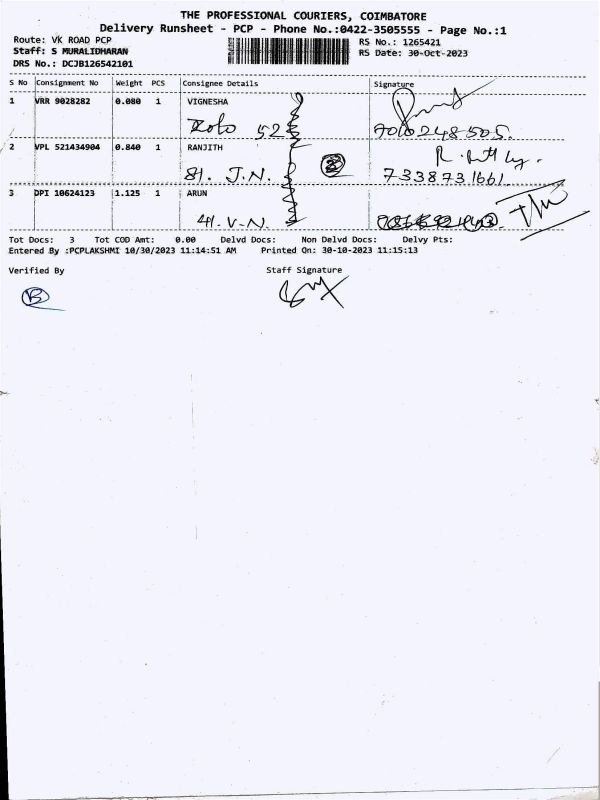 THE PROFESSIONAL COURIERS, COIMBATORE
Delivery Runsheet - PCP - Phone No.:0422-3505555 - Page No.:1
Route: VK ROAD PCP
RS No.: 1265421
Staff: S MURALIDHARAN
RS Date: 30-Oct-2023
DRS No.: DCJB126542101
S No Consignment No Weight PCS Consignee Details Signature
1 VRR 9028282 0.080 1 VIGNESHA
7010248505.
2 VPL 521434904 0.840 1 RANJITH
81. J.N. 7338731661.
3 DPI 10624123 1.125 1 ARUN
41. V.N.
Tot Docs: 3 Tot COD Amt: 0.00 Delvd Docs: Non Delvd Docs: Delvy Pts:
Entered By :PCPLAKSHMI 10/30/2023 11:14:51 AM Printed On: 30-10-2023 11:15:13
Verified By Staff Signature